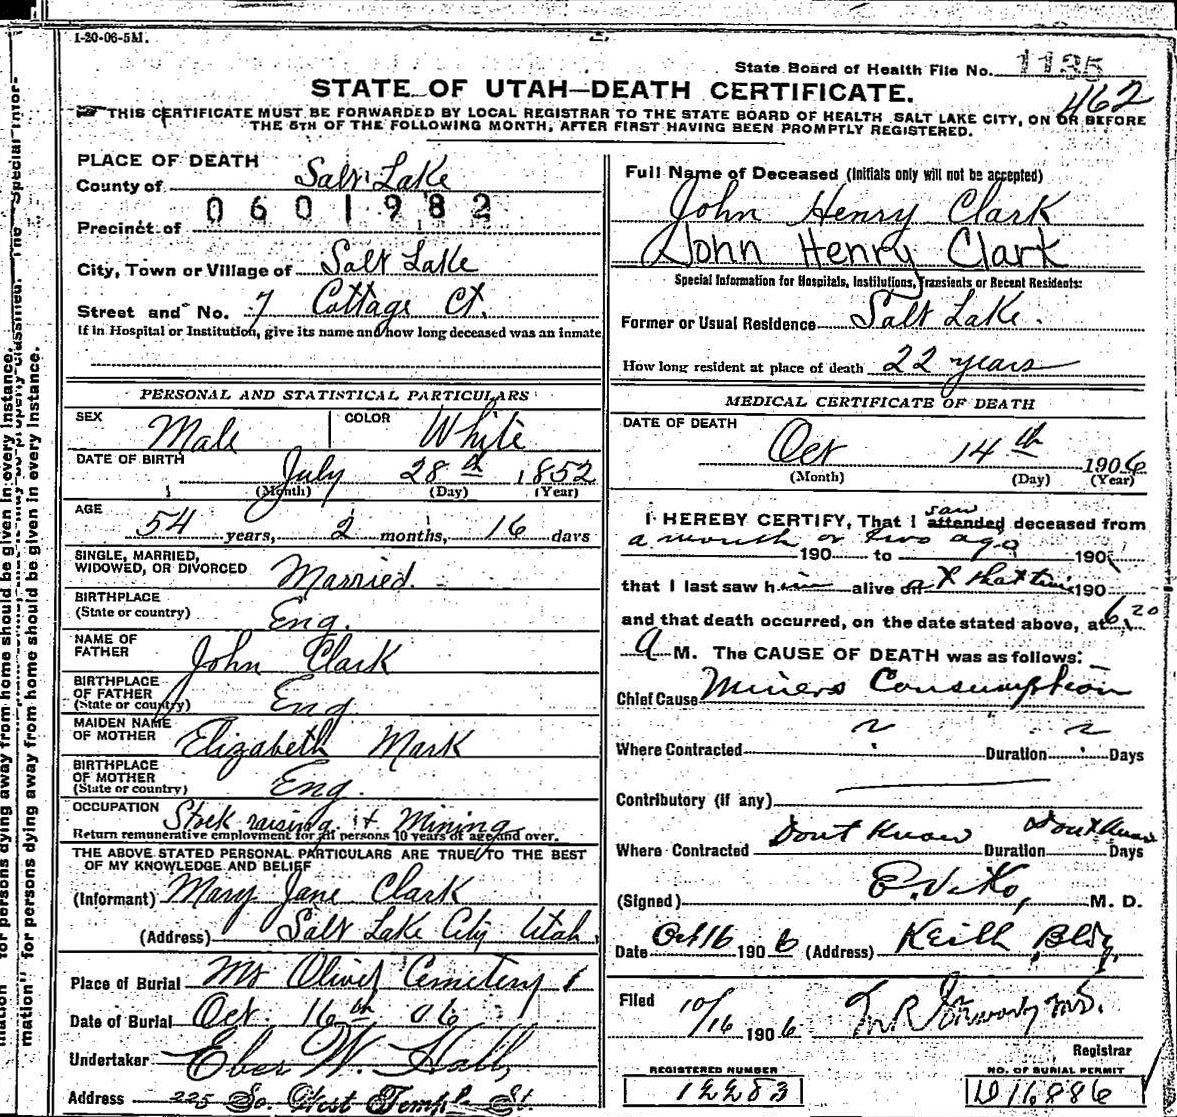 1-20-06-5M.
State Board of Health File No. 1135
462
STATE OF UTAH—DEATH CERTIFICATE.
THIS CERTIFICATE MUST BE FORWARDED BY LOCAL REGISTRAR TO THE STATE BOARD OF HEALTH, SALT LAKE CITY, ON OR BEFORE
THE 5TH OF THE FOLLOWING MONTH, AFTER FIRST HAVING BEEN PROMPTLY REGISTERED.
PLACE OF DEATH
County of Salt Lake
0601982
Precinct of
City, Town or Village of Salt Lake
Street and No. 7 Cottage Ct.
If in Hospital or Institution, give its name and how long deceased was an inmate
PERSONAL AND STATISTICAL PARTICULARS
SEX Male COLOR White
DATE OF BIRTH July 28th 1852
(Month) (Day) (Year)
AGE 54 years, 2 months, 16 days
SINGLE, MARRIED,
WIDOWED, OR DIVORCED Married.
BIRTHPLACE
(State or country) Eng.
NAME OF
FATHER John Clark
BIRTHPLACE
OF FATHER
(State or country) Eng
MAIDEN NAME
OF MOTHER Elizabeth Mark
BIRTHPLACE
OF MOTHER
(State or country) Eng.
OCCUPATION Stock raising & Mining
Return remunerative employment for all persons 10 years of age and over.
THE ABOVE STATED PERSONAL PARTICULARS ARE TRUE TO THE BEST
OF MY KNOWLEDGE AND BELIEF
(Informant) Mary Jane Clark
(Address) Salt Lake City Utah.
Place of Burial Mt Olivet Cemetery
Date of Burial Oct. 16th 06
Undertaker Eber W. Hall,
Address 225 So. West Temple St.
Full Name of Deceased (Initials only will not be accepted)
John Henry Clark
John Henry Clark
Special Information for Hospitals, Institutions, Transients or Recent Residents:
Former or Usual Residence Salt Lake.
How long resident at place of death 22 years
MEDICAL CERTIFICATE OF DEATH
DATE OF DEATH
Oct 14th 1906
(Month) (Day) (Year)
saw
I HEREBY CERTIFY, That I attended deceased from
a month or two ago 190 to 190
that I last saw him alive on that time 190
and that death occurred, on the date stated above, at 6:20
A M. The CAUSE OF DEATH was as follows:
Chief Cause Miners Consumption
Where Contracted ? Duration ? Days
Contributory (if any)
Where Contracted Dont Know Duration Dont Know Days
(Signed) E. Viko, M. D.
Date Oct 16 1906 (Address) Keith Bldg,
Filed 10/16 1906
Registrar
REGISTERED NUMBER NO. OF BURIAL PERMIT
12283 D 16886
for persons dying away from home should be given in every instance.
mation" for persons dying away from home should be given in every instance.